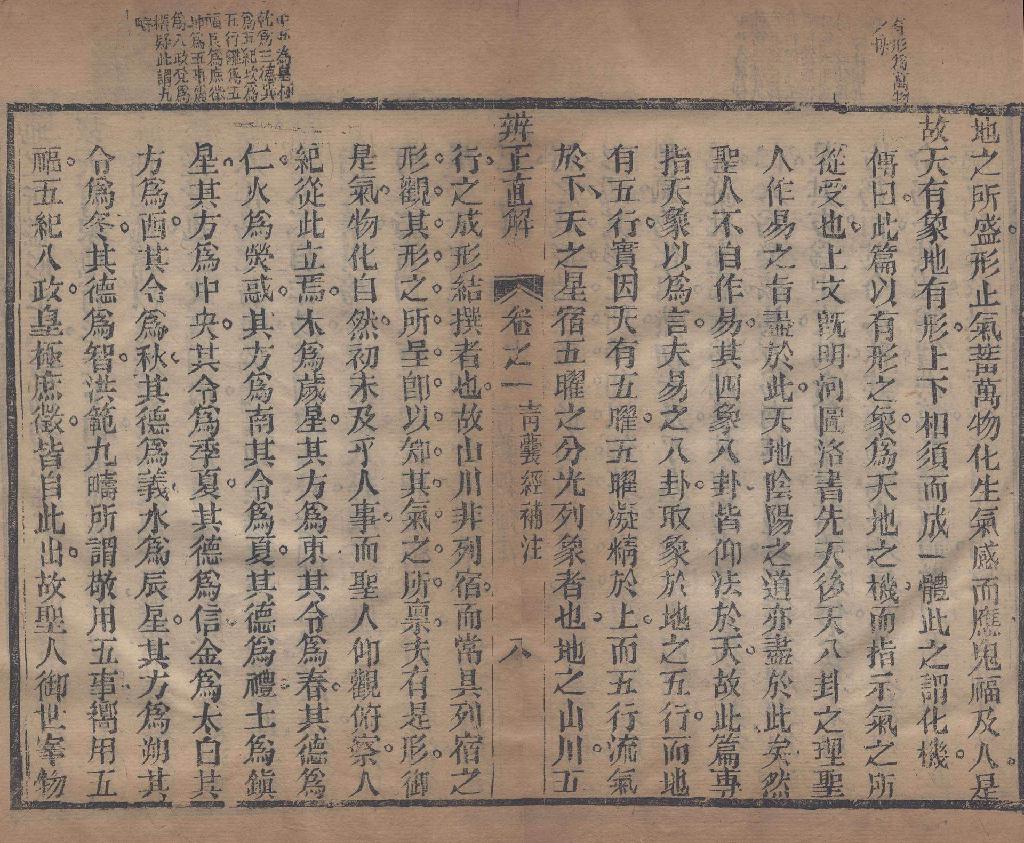 有形爲萬物
之母
地之所盛形止氣蓄萬物化生氣感而應鬼福及人是
故天有象地有形上下相須而成一體此之謂化機
傳曰此篇以有形之象爲天地之機而指示氣之所
從受也上文旣明河圖洛書先天後天八卦之理聖
人作易之旨盡於此天地陰陽之道亦盡於此矣然
聖人不自作易其四象八卦皆仰法於天故此篇專
指天象以爲言夫易之八卦取象於地之五行而地
有五行實因天有五曜五曜凝精於上而五行流氣
於下天之星宿五曜之分光列象者也地之山川五
辨正直解 卷之一 靑囊經補注 八
行之成形結撰者也故山川非列宿而常具列宿之
形觀其形之所呈卽以知其氣之所禀夫有是形御
是氣物化自然初未及乎人事而聖人仰觀俯察人
紀從此立焉木爲歲星其方爲東其令爲春其德爲
仁火爲熒惑其方爲南其令爲夏其德爲禮土爲鎭
星其方爲中央其令爲季夏其德爲信金爲太白其
方爲西其令爲秋其德爲義水爲辰星其方爲朔其
令爲冬其德爲智洪範九疇所謂敬用五事嚮用五
福五紀八政皇極庶徵皆自此出故聖人御世宰物
爲皇極
乾爲三德巽
爲五紀坎爲
五行離爲五
福艮爲庶徵
坤爲五事震
爲八政兌爲
稽疑此謂九
疇